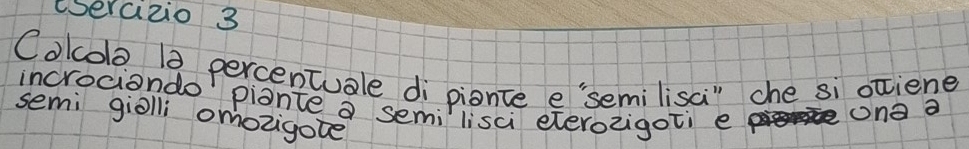 esercizio 3
Calcola la percentuale di piante e "semi lisci" che si ottiene
incrociando piante a semi lisci eterozigoti e una a
semi gialli omozigote